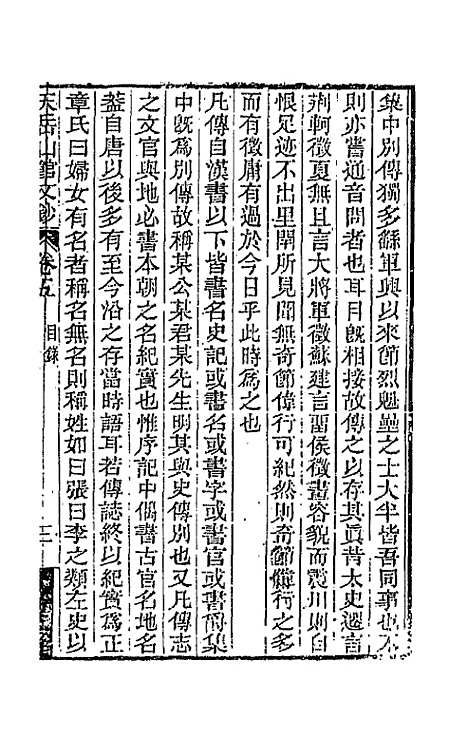 集中別傳獨多繇軍興以來節烈魁壘之士大半皆吾同事也不
則亦嘗通音問者也耳目旣相接故傳之以存其眞昔太史遷言
荆軻徵夏無且言大將軍徵蘇建言畱侯徵畫容貌而震川則自
恨足迹不出里閈所見聞無奇節偉行可紀然則奇節偉行之多
而有徵庸有過於今日乎此時爲之也
凡傳自漢書以下皆書名史記或書名或書字或書官或書爵集
中旣爲別傳故稱某公某君某先生明其與史傳別也又凡傳志
之文官與地必書本朝之名紀實也惟序記中偶書古官名地名
蓋自唐以後多有至今沿之存當時語耳若傳誌終以紀實爲正
章氏曰婦女有名者稱名無名則稱姓如曰張曰李之類左史以
天岳山館文鈔 卷五 目錄 三